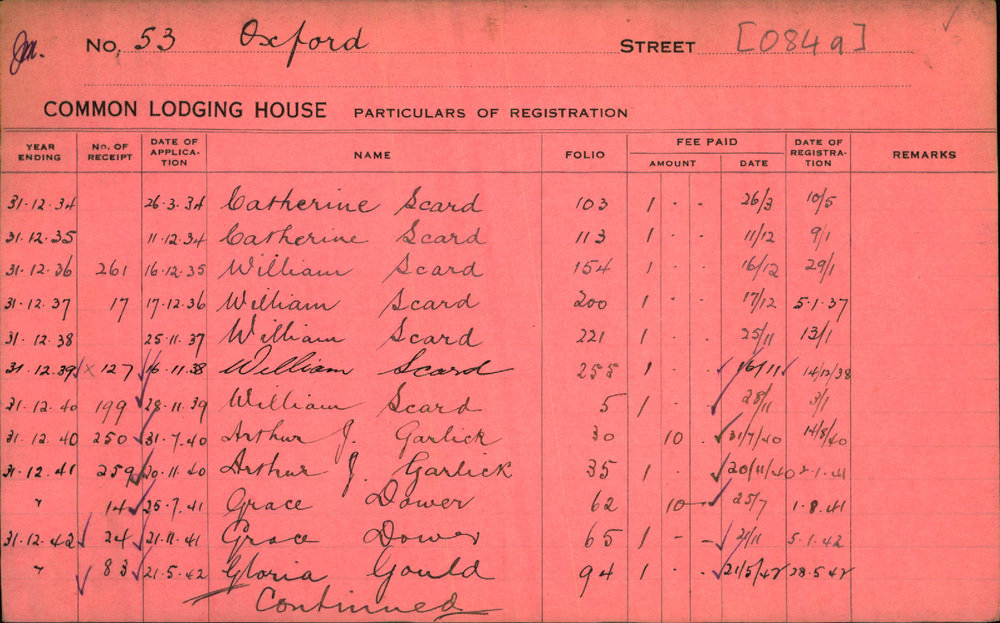 Jn. No. 53 Oxford STREET [084a]
COMMON LODGING HOUSE PARTICULARS OF REGISTRATION
YEAR ENDING No. OF RECEIPT DATE OF APPLICA- TION NAME FOLIO FEE PAID AMOUNT DATE DATE OF REGISTRA- TION REMARKS
31.12.34 26.3.34 Catherine Scard 103 1 - - 26/3 10/5
31.12.35 11.12.34 Catherine Scard 113 1 - - 11/12 9/1
31.12.36 261 16.12.35 William Scard 154 1 - - 16/12 29/1
31.12.37 17 17.12.36 William Scard 200 1 - - 17/12 5.1.37
31.12.38 25.11.37 William Scard 221 1 - - 25/11 13/1
31.12.39 x 127 16.11.38 William Scard 255 1 - - 16/11 14/12/38
31.12.40 199 28.11.39 William Scard 5 1 - - 28/11 3/1
31.12.40 250 31.7.40 Arthur J. Garlick 30 10 - 31/7/40 14/8/40
31.12.41 259 20.11.40 Arthur J. Garlick 35 1 - 20/11/40 2.1.41
" 14 25.7.41 Grace Dower 62 10 - 25/7 1.8.41
31.12.42 24 21.11.41 Grace Dower 65 1 - - 21/11 5.1.42
" 83 21.5.42 Gloria Gould 94 1 - - 21/5/42 28.5.42
Continued